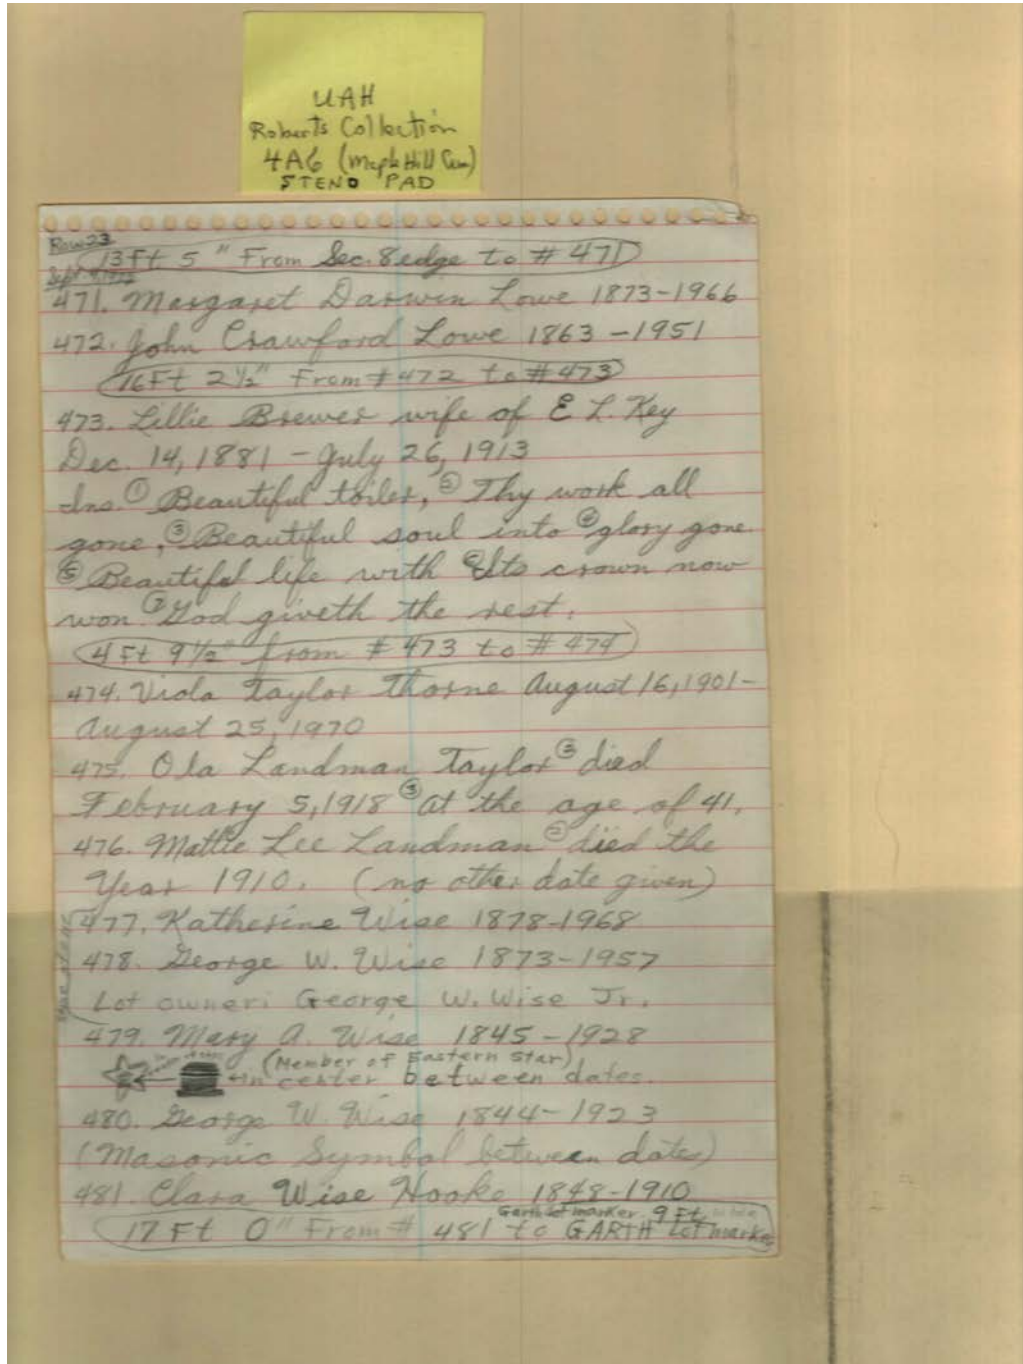 UAH
Roberts Collection
4A6 (Maple Hill Cem)
STENO PAD
Row 23
13 Ft 5 " From Sec. 8 edge to # 471
Sept.
471. Margaret Darwin Lowe 1873-1966
472. John Crawford Lowe 1863-1951
16 Ft 2 1/2" From # 472 to # 473
473. Lillie Brewer wife of E L. Key
Dec. 14, 1881 - July 26, 1913
Ins. ① Beautiful toiler, ② Thy work all
gone, ③ Beautiful soul into ④ glory gone.
⑤ Beautiful life with ⑥ Its crown now
won ⑦ God giveth the rest.
4 Ft 9 1/2" from # 473 to # 474
474. Viola Taylor Thorne August 16, 1901-
August 25, 1970
475. Ola Landman Taylor ② died
February 5, 1918 ③ at the age of 41.
476. Mattie Lee Landman ② died the
Year 1910. (no other date given)
477. Katherine Wise 1878-1968
478. George W. Wise 1873-1957
Lot owner: George W. Wise Jr.
479. Mary A. Wise 1845-1928
(Member of Eastern Star)
←In center between dates.
480. George W. Wise 1844-1923
(Masonic Symbol between dates)
481. Clara Wise Hooke 1848-1910
Garth lot marker 9 Ft.
17 Ft 0" From # 481 to GARTH Lot marker